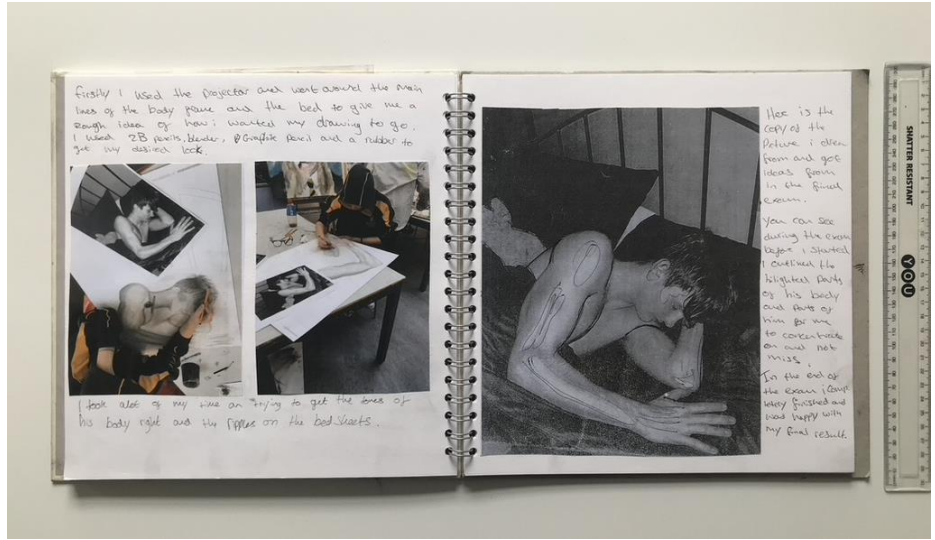 firstly I used the projector and went around the main
lines of the body frame and the bed to give me a
rough idea of how i wanted my drawing to go.
I used 2B pencils, blender, Graphite pencil and a rubber to
get my desired look.
I took alot of my time on trying to get the tones of
his body right and the ripples on the bed sheets.
Here is the
copy of the
Picture i drew
from and got
ideas from
in the final
exam.
You can see
during the exam
before i started
I outlined the
hilighted parts
of his body
and parts of
him for me
to concentrate
on and not
miss.
In the end of
the exam i comp
letely finished and
was happy with
my final result.
SHATTER RESISTANT
YOU